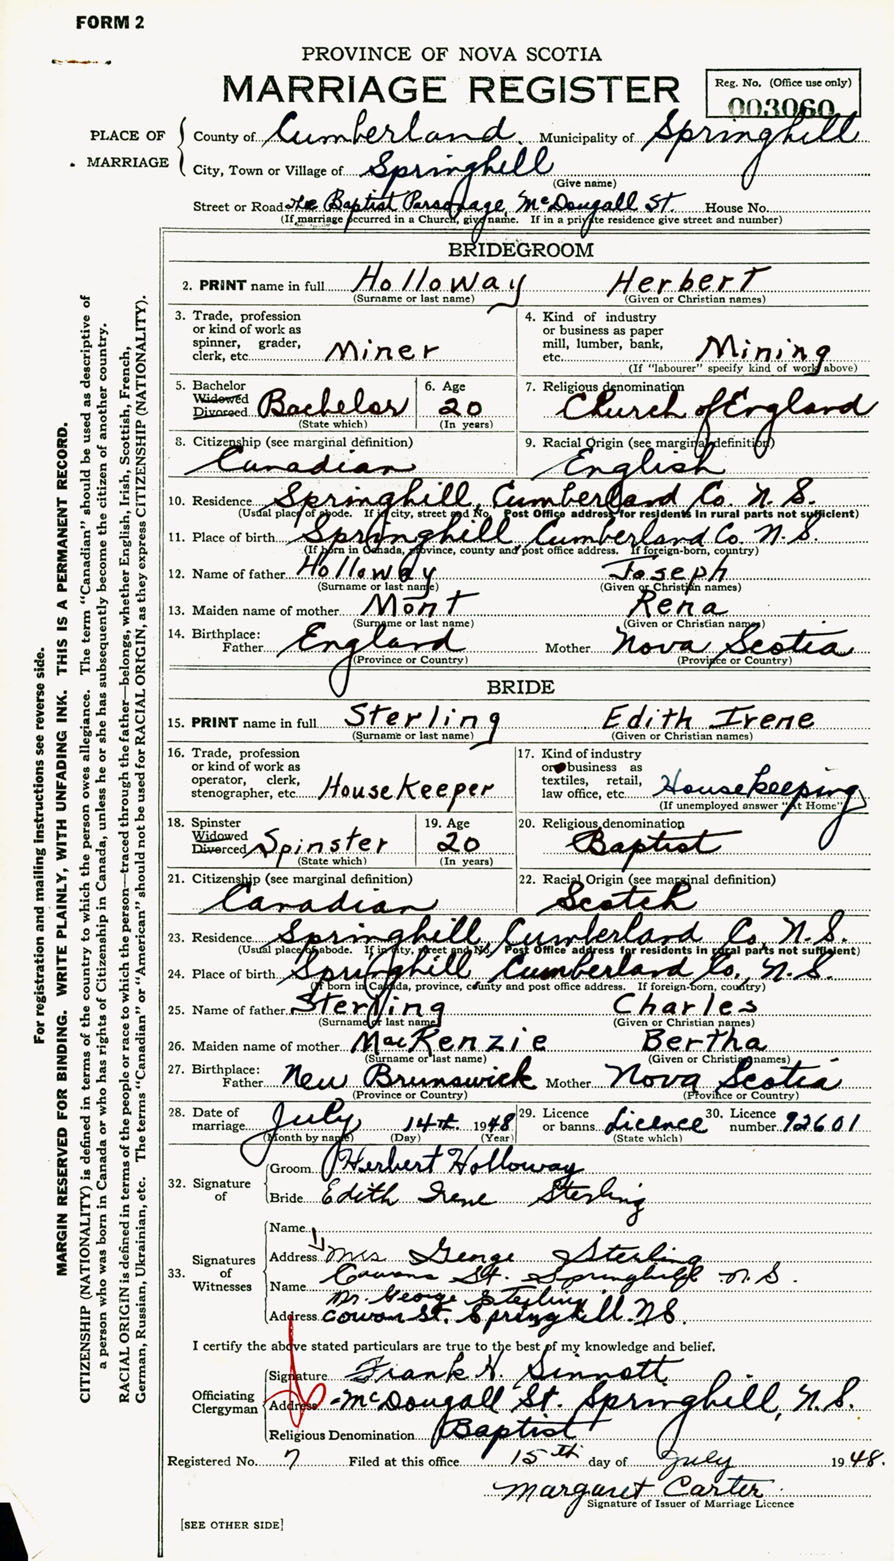 FORM 2
PROVINCE OF NOVA SCOTIA
MARRIAGE REGISTER
Reg. No. (Office use only)
003060
PLACE OF MARRIAGE
County of Cumberland Municipality of Springhill
City, Town or Village of Springhill
(Give name)
Street or Road The Baptist Parsonage, McDougall St. House No.
(If marriage occurred in a Church, give name. If in a private residence give street and number)
BRIDEGROOM
2. PRINT name in full Holloway Herbert
(Surname or last name) (Given or Christian names)
3. Trade, profession or kind of work as spinner, grader, clerk, etc. Miner
4. Kind of industry or business as paper mill, lumber, bank, etc. Mining
(If "labourer" specify kind of work above)
5. Bachelor Widowed Divorced Bachelor
(State which)
6. Age 20
(In years)
7. Religious denomination
Church of England
8. Citizenship (see marginal definition)
Canadian
9. Racial Origin (see marginal definition)
English
10. Residence Springhill, Cumberland Co. N.S.
(Usual place of abode. If in city, street and No. Post Office address for residents in rural parts not sufficient)
11. Place of birth Springhill Cumberland Co. N.S.
(If born in Canada, province, county and post office address. If foreign-born, country)
12. Name of father Holloway Joseph
(Surname or last name) (Given or Christian names)
13. Maiden name of mother Mont Rena
(Surname or last name) (Given or Christian names)
14. Birthplace: Father England Mother Nova Scotia
(Province or Country) (Province or Country)
BRIDE
15. PRINT name in full Sterling Edith Irene
(Surname or last name) (Given or Christian names)
16. Trade, profession or kind of work as operator, clerk, stenographer, etc. Housekeeper
17. Kind of industry or business as textiles, retail, law office, etc. Housekeeping
(If unemployed answer "At Home")
18. Spinster Widowed Divorced Spinster
(State which)
19. Age 20
(In years)
20. Religious denomination
Baptist
21. Citizenship (see marginal definition)
Canadian
22. Racial Origin (see marginal definition)
Scotch
23. Residence Springhill, Cumberland Co., N.S.
(Usual place of abode. If in city, street and No. Post Office address for residents in rural parts not sufficient)
24. Place of birth Springhill Cumberland Co., N.S.
(If born in Canada, province, county and post office address. If foreign-born, country)
25. Name of father Sterling Charles
(Surname or last name) (Given or Christian names)
26. Maiden name of mother MacKenzie Bertha
(Surname or last name) (Given or Christian names)
27. Birthplace: Father New Brunswick Mother Nova Scotia
(Province or Country) (Province or Country)
28. Date of marriage July 14th 1948
(Month by name) (Day) (Year)
29. Licence or banns Licence
(State which)
30. Licence number 92601
32. Signature of
Groom Herbert Holloway
Bride Edith Irene Sterling
33. Signatures of Witnesses
Name
Address Mrs George Sterling
Cowans St. Springhill N.S.
Name Mr. George Sterling
Address Cowan St. Springhill NS.
I certify the above stated particulars are true to the best of my knowledge and belief.
Officiating Clergyman
Signature Frank H. Sinnott
Address McDougall St. Springhill, N.S.
Religious Denomination Baptist
Registered No. 7 Filed at this office 15th day of July 1948.
Margaret Carter
Signature of Issuer of Marriage Licence
[SEE OTHER SIDE]
For registration and mailing instructions see reverse side.
MARGIN RESERVED FOR BINDING. WRITE PLAINLY, WITH UNFADING INK. THIS IS A PERMANENT RECORD.
CITIZENSHIP (NATIONALITY) is defined in terms of the country to which the person owes allegiance. The term "Canadian" should be used as descriptive of
a person who was born in Canada or who has rights of Citizenship in Canada, unless he or she has subsequently become the citizen of another country.
RACIAL ORIGIN is defined in terms of the people or race to which the person—traced through the father—belongs, whether English, Irish, Scottish, French,
German, Russian, Ukrainian, etc. The terms "Canadian" or "American" should not be used for RACIAL ORIGIN, as they express CITIZENSHIP (NATIONALITY).